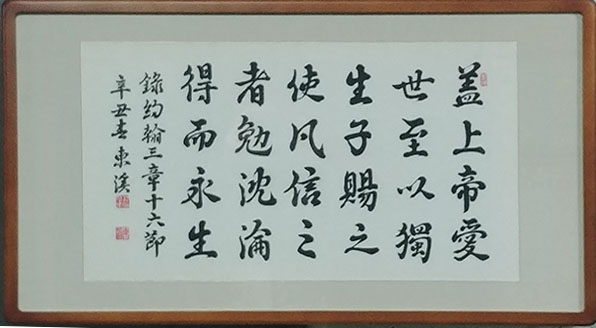 盖上帝愛
世至以獨
生子賜之
使凡信之
者勉沈淪
得而永生
錄約翰三章十六節
辛丑春東溪